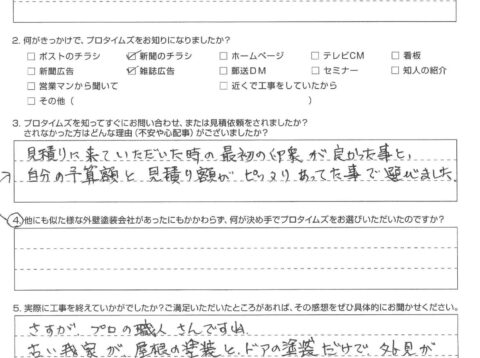 2. 何がきっかけで、プロタイムズをお知りになりましたか?
□ ポストのチラシ ☑ 新聞のチラシ □ ホームページ □ テレビCM □ 看板
□ 新聞広告 ☑ 雑誌広告 □ 郵送DM □ セミナー □ 知人の紹介
□ 営業マンから聞いて □ 近くで工事をしていたから
□ その他( )
3. プロタイムズを知ってすぐにお問い合わせ、または見積依頼をされましたか?
されなかった方はどんな理由(不安や心配事)がございましたか?
見積りに来ていただいた時の最初の印象が良かった事と、
自分の予算額と見積り額がピッタリあってた事で選びました。
④他にも似た様な外壁塗装会社があったにもかかわらず、何が決め手でプロタイムズをお選びいただいたのですか?
5. 実際に工事を終えていかがでしたか?ご満足いただいたところがあれば、その感想をぜひ具体的にお聞かせください。
さすが、プロの職人さんですね
古い我家が、屋根の塗装と、ドアの塗装だけで、外見が